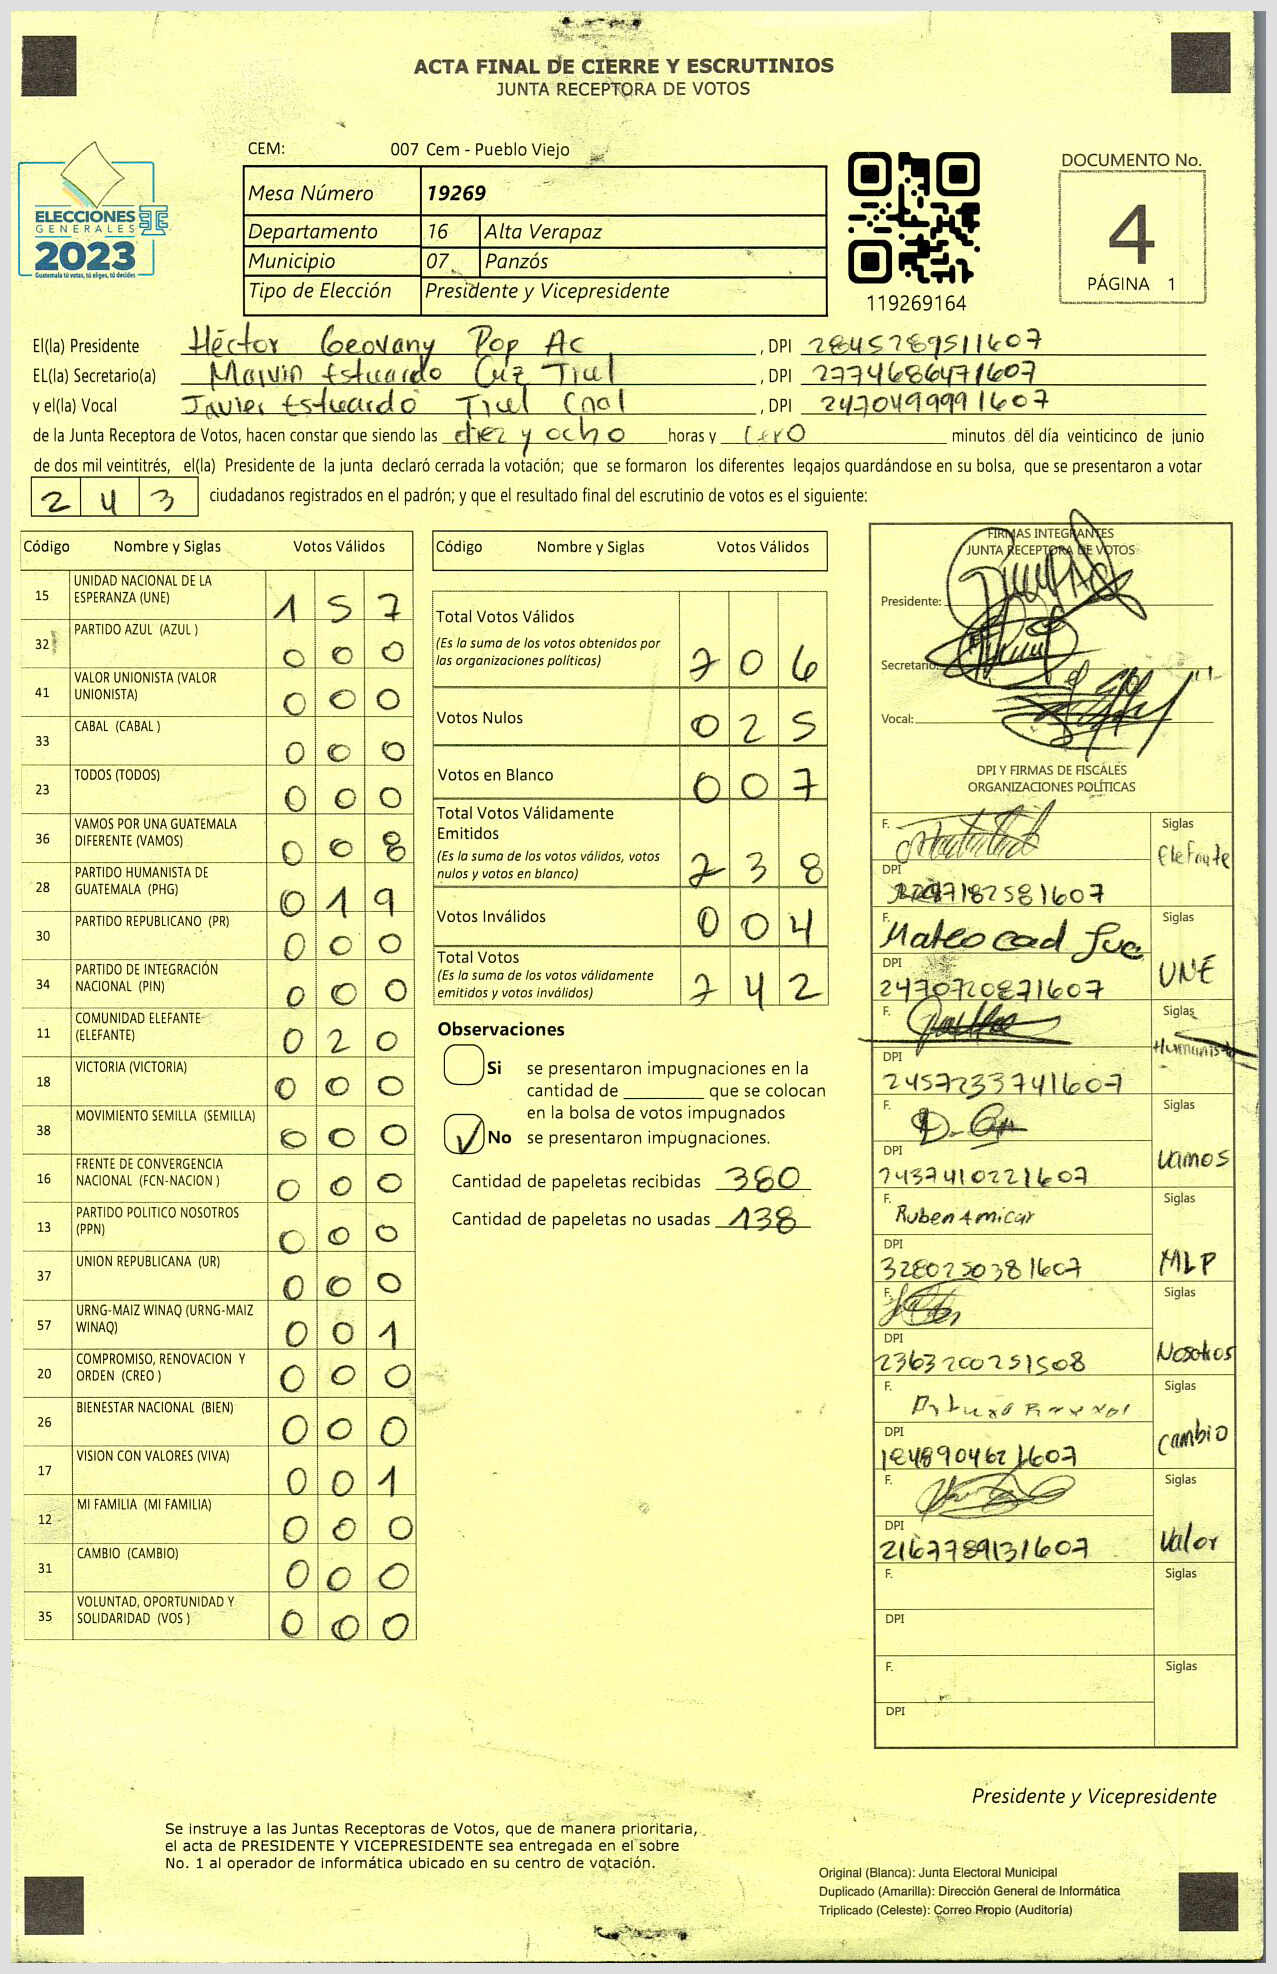 ACTA FINAL DE CIERRE Y ESCRUTINIOS
JUNTA RECEPTORA DE VOTOS
CEM: 007 Cem - Pueblo Viejo
ELECCIONES
GENERALES
2023
Guatemala tú votas, tú eliges, tú decides
Mesa Número 19269
Departamento 16 Alta Verapaz
Municipio 07 Panzós
Tipo de Elección Presidente y Vicepresidente
119269164
DOCUMENTO No.
4
PÁGINA 1
El(la) Presidente Héctor Geovany Pop Ac , DPI 2845789511607
EL(la) Secretario(a) Marvin Estuardo Cuz Tiul , DPI 2774686471607
y el(la) Vocal Javier Estuardo Tiul Cnal , DPI 2470499991607
de la Junta Receptora de Votos, hacen constar que siendo las diez y ocho horas y cero minutos del día veinticinco de junio
de dos mil veintitrés, el(la) Presidente de la junta declaró cerrada la votación; que se formaron los diferentes legajos guardándose en su bolsa, que se presentaron a votar
243 ciudadanos registrados en el padrón; y que el resultado final del escrutinio de votos es el siguiente:
Código Nombre y Siglas Votos Válidos
15 UNIDAD NACIONAL DE LA ESPERANZA (UNE) 157
32 PARTIDO AZUL (AZUL ) 000
41 VALOR UNIONISTA (VALOR UNIONISTA) 000
33 CABAL (CABAL ) 000
23 TODOS (TODOS) 000
36 VAMOS POR UNA GUATEMALA DIFERENTE (VAMOS) 008
28 PARTIDO HUMANISTA DE GUATEMALA (PHG) 019
30 PARTIDO REPUBLICANO (PR) 000
34 PARTIDO DE INTEGRACIÓN NACIONAL (PIN) 000
11 COMUNIDAD ELEFANTE (ELEFANTE) 020
18 VICTORIA (VICTORIA) 000
38 MOVIMIENTO SEMILLA (SEMILLA) 000
16 FRENTE DE CONVERGENCIA NACIONAL (FCN-NACION ) 000
13 PARTIDO POLITICO NOSOTROS (PPN) 000
37 UNION REPUBLICANA (UR) 000
57 URNG-MAIZ WINAQ (URNG-MAIZ WINAQ) 001
20 COMPROMISO, RENOVACION Y ORDEN (CREO ) 000
26 BIENESTAR NACIONAL (BIEN) 000
17 VISION CON VALORES (VIVA) 001
12 MI FAMILIA (MI FAMILIA) 000
31 CAMBIO (CAMBIO) 000
35 VOLUNTAD, OPORTUNIDAD Y SOLIDARIDAD (VOS ) 000
Código Nombre y Siglas Votos Válidos
Total Votos Válidos
(Es la suma de los votos obtenidos por las organizaciones políticas) 206
Votos Nulos 025
Votos en Blanco 007
Total Votos Válidamente Emitidos
(Es la suma de los votos válidos, votos nulos y votos en blanco) 238
Votos Inválidos 004
Total Votos
(Es la suma de los votos válidamente emitidos y votos inválidos) 242
Observaciones
Si se presentaron impugnaciones en la
cantidad de ________ que se colocan
en la bolsa de votos impugnados
No se presentaron impugnaciones.
Cantidad de papeletas recibidas 380
Cantidad de papeletas no usadas 138
FIRMAS INTEGRANTES
JUNTA RECEPTORA DE VOTOS
Presidente:
Secretario:
Vocal:
DPI Y FIRMAS DE FISCALES
ORGANIZACIONES POLÍTICAS
F. Siglas Elefante
DPI
F. Mateo Siglas UNE
DPI 2470720871607
F. Siglas Humanista
DPI 2457233741607
F. Siglas Vamos
DPI 2437410221607
F. Ruben Amicar Siglas MLP
DPI 3280250381607
F. Siglas Nosotros
DPI 2363200251508
F. Siglas Cambio
DPI 1848904621607
F. Siglas Valor
DPI 2167789131607
F. Siglas
DPI
F. Siglas
DPI
Presidente y Vicepresidente
Se instruye a las Juntas Receptoras de Votos, que de manera prioritaria,
el acta de PRESIDENTE Y VICEPRESIDENTE sea entregada en el sobre
No. 1 al operador de informática ubicado en su centro de votación.
Original (Blanca): Junta Electoral Municipal
Duplicado (Amarilla): Dirección General de Informática
Triplicado (Celeste): Correo Propio (Auditoría)